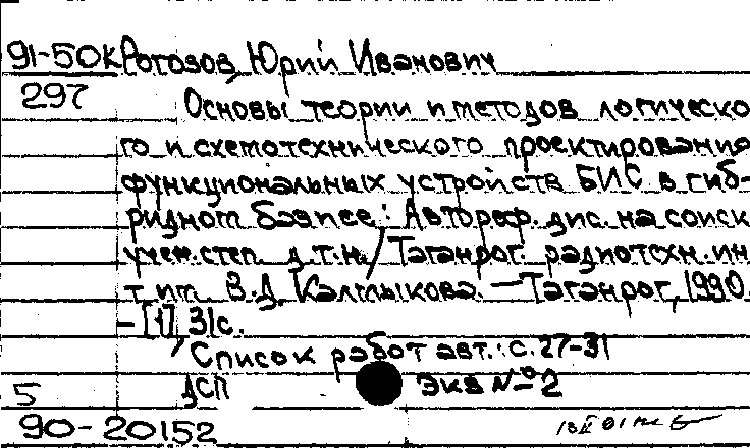 91-50К Рогозов, Юрий Иванович
297
Основы теории и методов логическо
го и схемотехнического проектирования
функциональных устройств БИС в гиб-
ридном базисе : Автореф. дис. на соиск
учен. степ. д.т.н. / Таганрог. радиотехн. ин
т им. В.Д. Калмыкова. — Таганрог, 1990.
– [1], 31с.
Список работ авт.: с. 27-31
ДСП Экз № 2
5
90-20152